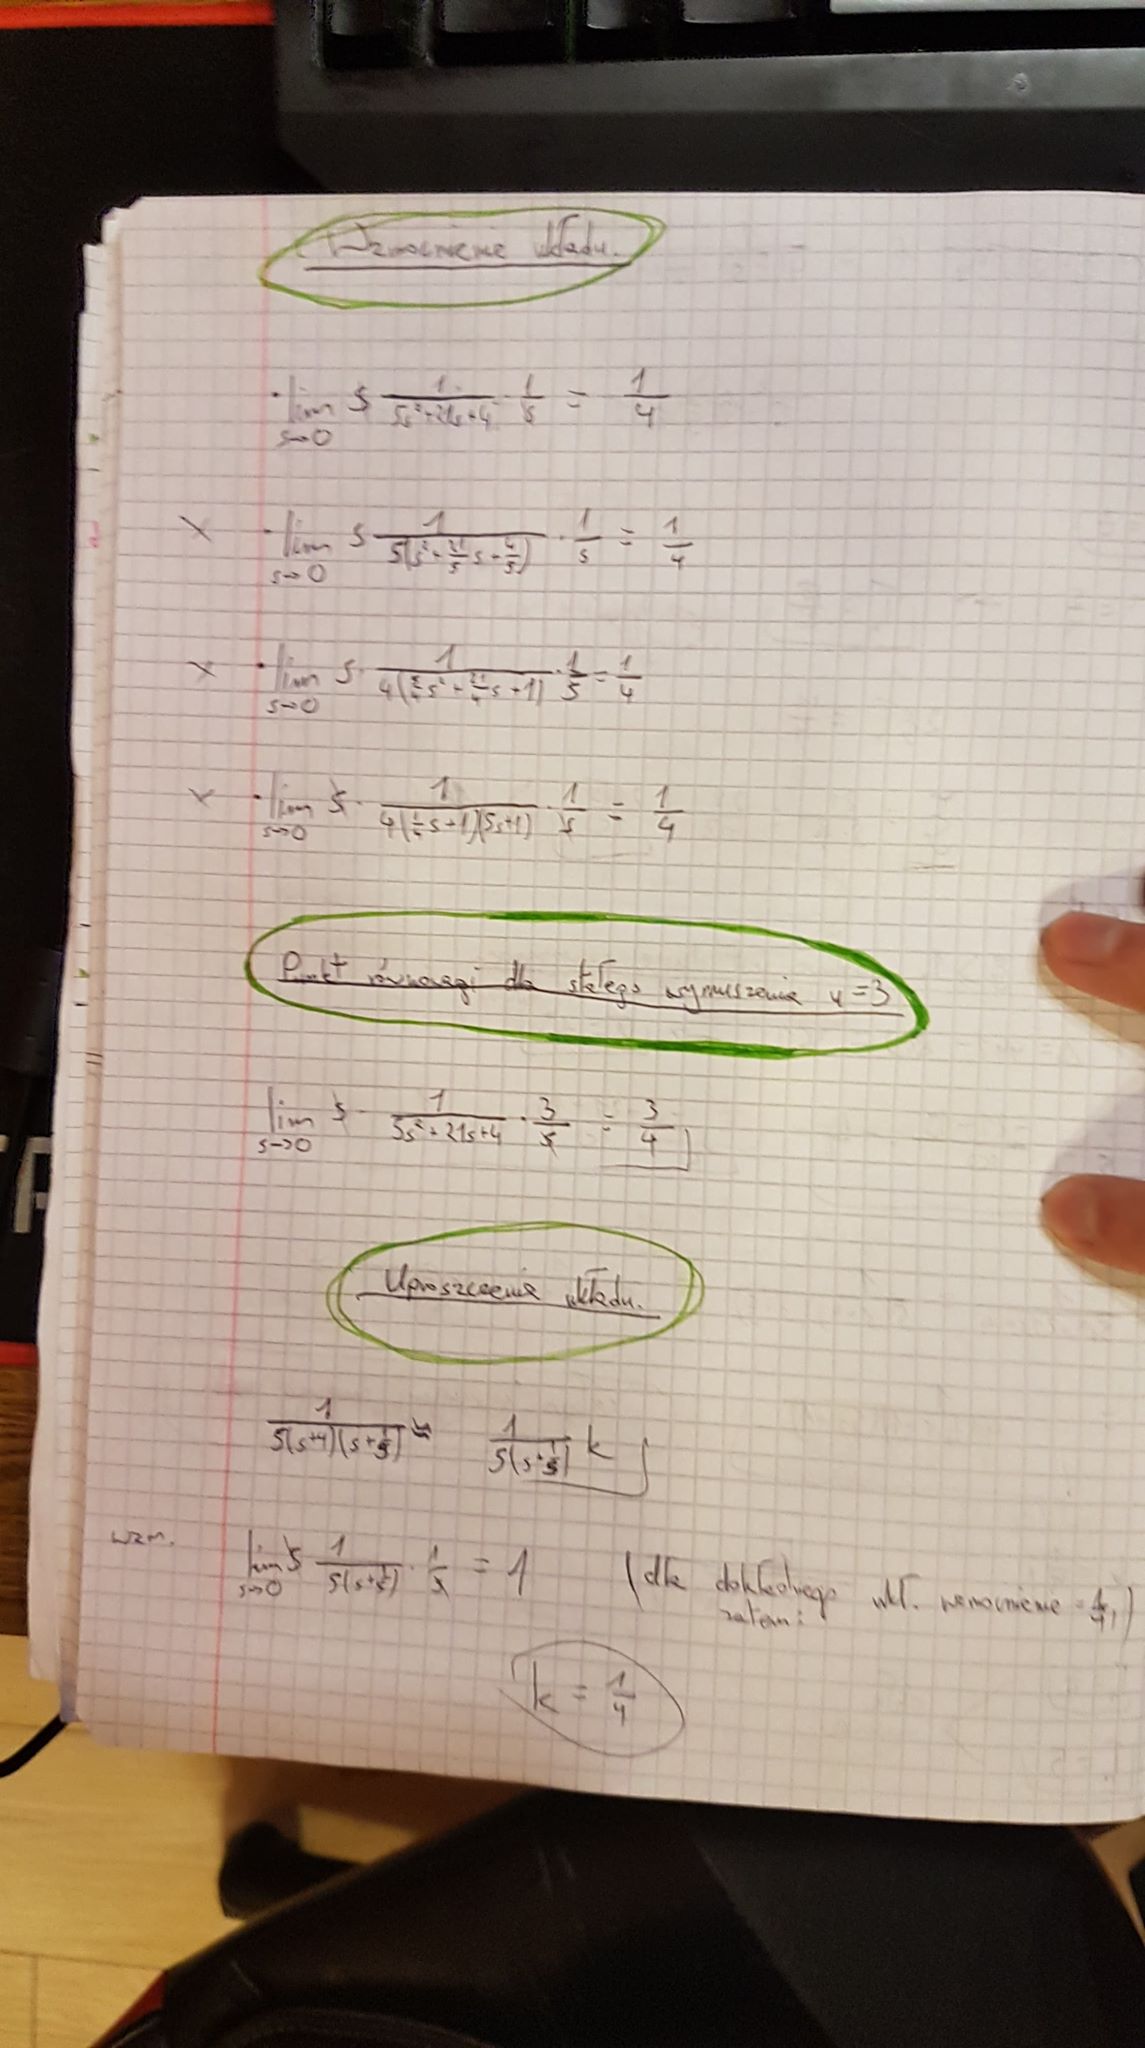 Wzmocnienie układu.
· lim s→0 s 1/(5s²+21s+4) · 1/s = 1/4
x · lim s→0 s 1/(5(s²+21/5 s+4/5)) · 1/s = 1/4
x · lim s→0 s · 1/(4(5/4 s²+21/4 s+1)) · 1/s = 1/4
x · lim s→0 s · 1/(4(1/4 s+1)(5s+1)) · 1/s = 1/4
Punkt równowagi dla stałego wymuszenia u=3
lim s→0 s · 1/(5s²+21s+4) · 3/s = 3/4
Uproszczenie układu.
1/(5(s+4)(s+1/5)) ≈ 1/(5(s+1/5)) k
wzm. lim s→0 s 1/(5(s+1/5)) · 1/s = 1 (dla dokładnego ukł. wzmocnienie = 1/4,)
zatem:
k = 1/4